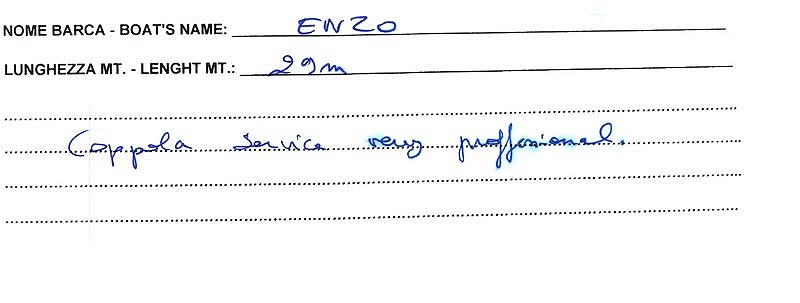 NOME BARCA - BOAT'S NAME: ENZO
LUNGHEZZA MT. - LENGHT MT.: 29m
Coppola service very proffesional.